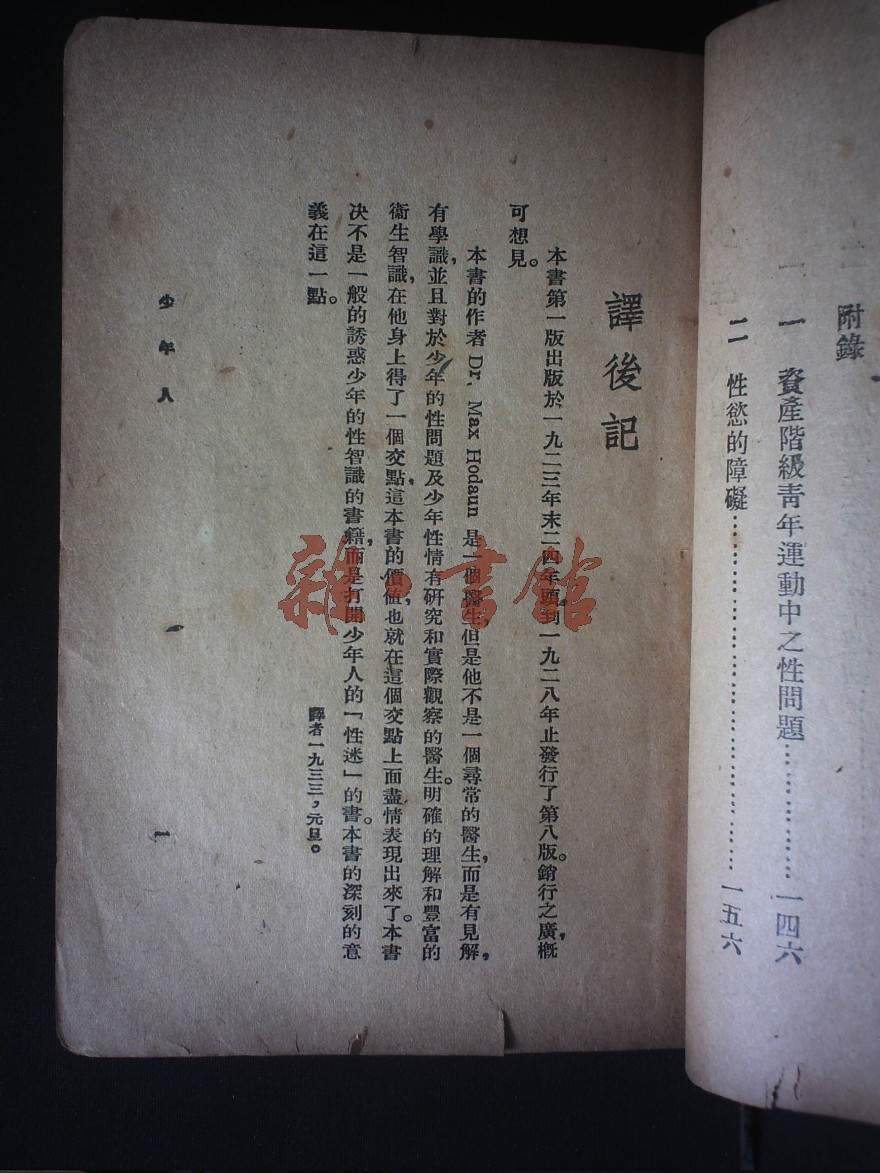 附錄
一 資產階級青年運動中之性問題……………一四六
二 性慾的障礙……………………………一五六
譯後記
本書第一版出版於一九二三年末二四年頭,到一九二八年止發行了第八版。銷行之廣,概
可想見。
本書的作者 Dr. Max Hodaun 是一個醫生,但是他不是一個尋常的醫生,而是有見解,
有學識,並且對於少年的性問題及少年性情有研究和實際觀察的醫生。明確的理解和豐富的
衞生智識,在他身上得了一個交點,這本書的價值,也就在這個交點上面盡情表現出來了。本書
決不是一般的誘惑少年的性智識的書籍,而是打開少年人的「性迷」的書。本書的深刻的意
義在這一點。
譯者一九三三,元旦。
少年人
一
雜·書館